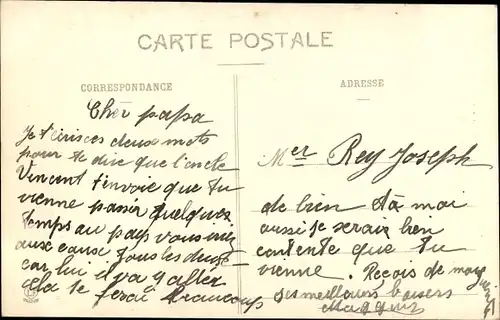 CARTE POSTALE
CORRESPONDANCE
ADRESSE
Cher papa
Je t'ecris ces deux mots
pour te dire que l'oncle
Vincent t'envoie que tu
vienne passer quelques
temps au pays vous irez
aux eaux tous les deux
car lui il va y aller
Ça te ferai beaucoup
Mer Rey Joseph
de bien Et a moi
aussi je serais bien
contente que tu
vienne. Reçois de moi
ses meilleurs baisers